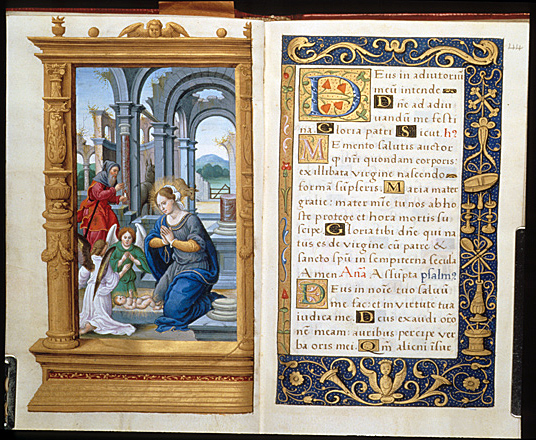 Deus in adiutoriū
meū intende
Dn̄e ad adiu
uandū me festi
na Gloria patri Sicut. h?
Memento salutis auctor
q̄ nr̄i quondam corporis:
ex illibata virgine nascendo
formā sūpseris: Maria mater
gratie: mater mīe: tu nos ab ho
ste protege et hora mortis su
scipe. Gloria tibi dn̄e qui na
tus es de virgine cū patre &
sancto spū in sempiterna secula
Amen Anā Assūpta psalm?
Deus in noīe tuo saluū
me fac: et in virtute tua
iudica me. Deus exaudi orō
nē meam: auribus percipe ver
ba oris mei. Qm̄ alieni īsue